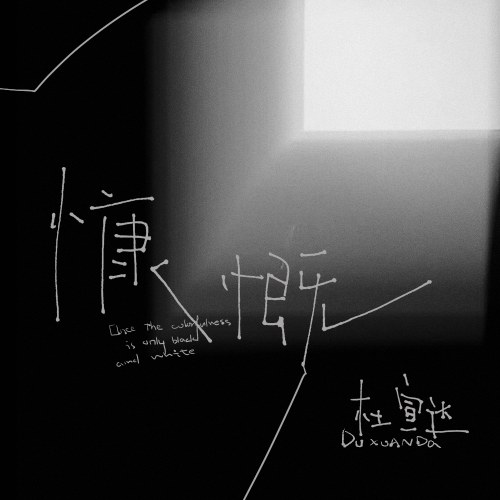 慷慨
Once the colorfulness
is only black
and white
杜宣达
DUXUANDa